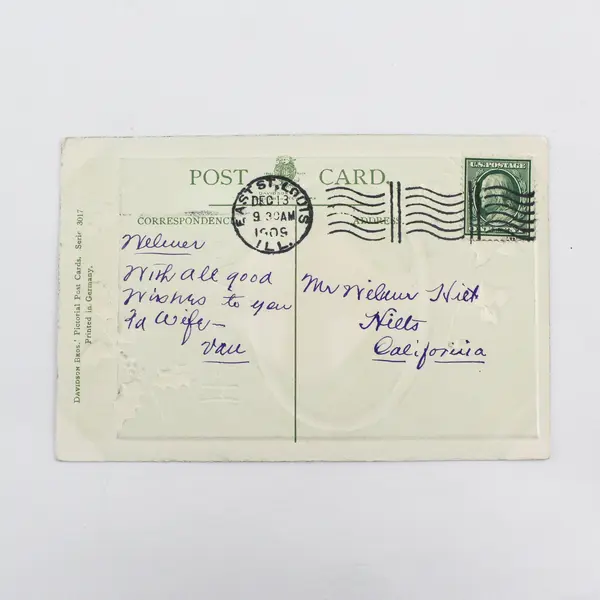 POST CARD
EAST ST. LOUIS
DEC 13
9 30AM
1909
ILL.
U.S. POSTAGE
CORRESPONDENCE
ADDRESS
Wilmer
With all good
Wishes to you
& Wife—
Van
Mr Wilmer Hilt
Hilts
California
DAVIDSON BROS.' Pictorial Post Cards. Serie 3017
Printed in Germany.